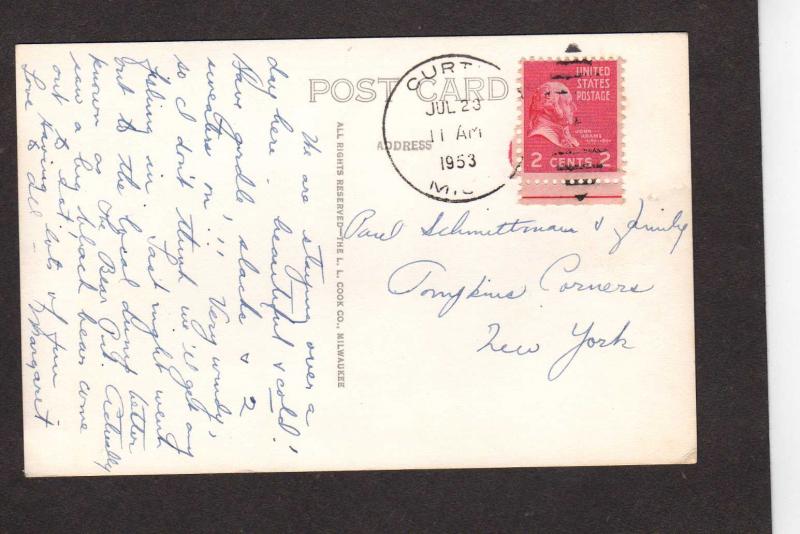 We are staying over a
day here - beautiful & cold!
Have girdle, slacks & 2
sweaters on!!! Very windy,
so I don't think we'll get any
fishing in. Last night went
out to the local dump better
known as The Bear Pit. Actually
saw a big black bear come
out to eat.
Having lots of fun
Love to all - Margaret
POST CARD
ADDRESS
ALL RIGHTS RESERVED—THE L. L. COOK CO., MILWAUKEE
CURTI
JUL 23
11 AM
1953
MIC
UNITED
STATES
POSTAGE
JOHN
ADAMS
2 CENTS 2
Paul Schmittman & family
Tompkins Corners
New York